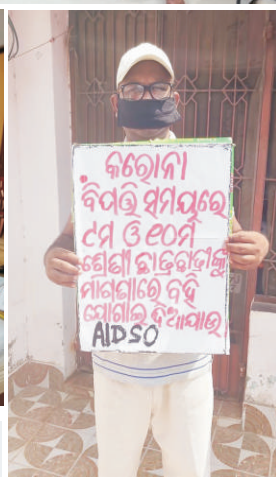 କରୋନା
ବିପତ୍ତି ସମୟରେ
୯ମ ଓ ୧୦ମ
ଶ୍ରେଣୀ ଛାତ୍ରଛାତ୍ରୀଙ୍କୁ
ମାଗଣାରେ ବହି
ଯୋଗାଇ ଦିଆଯାଉ
AIDSO